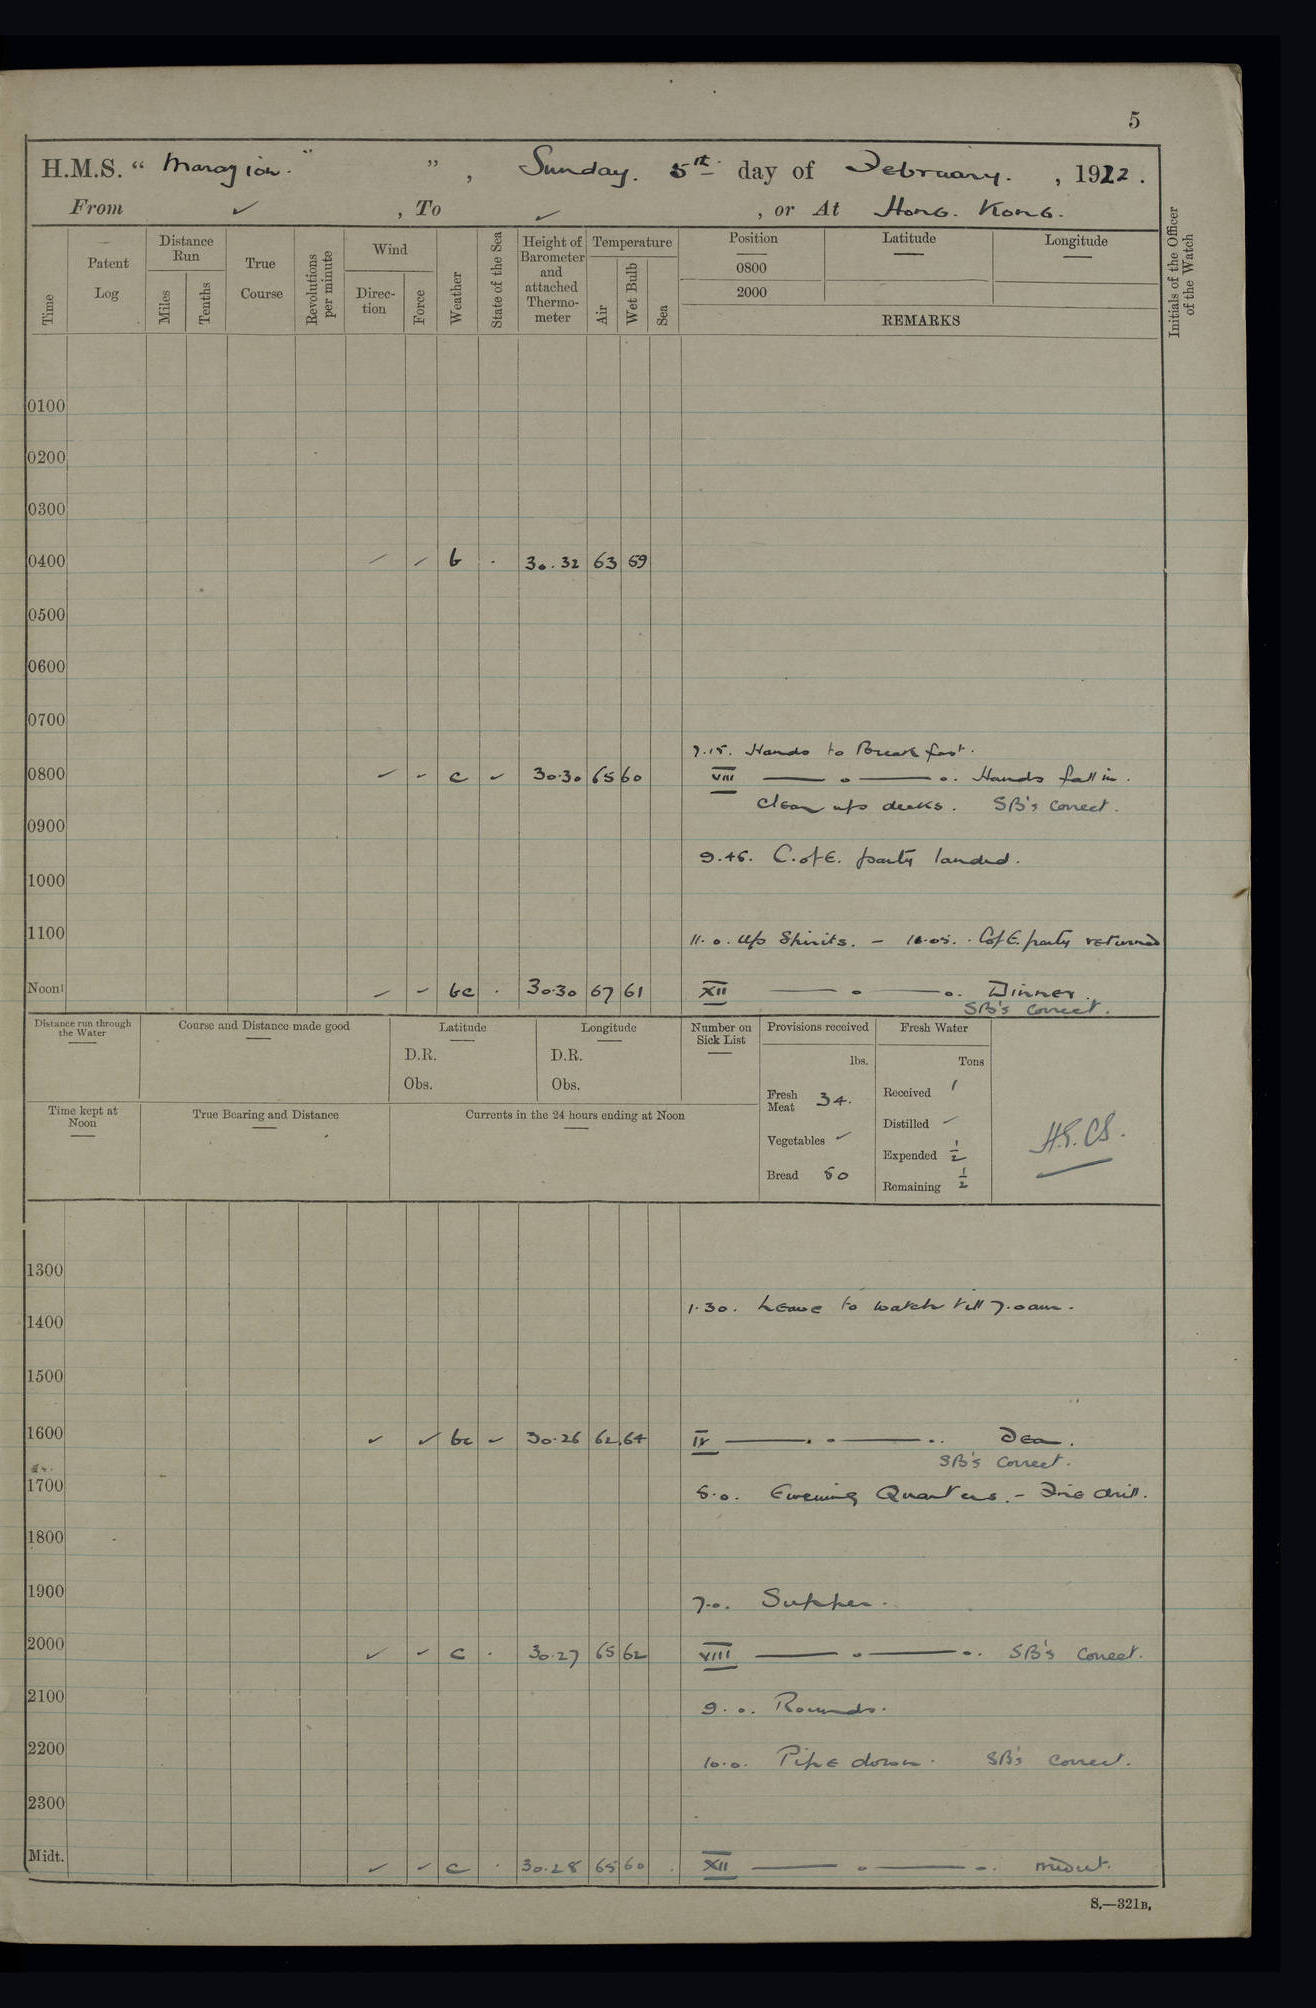 5
H.M.S. “ Marazion. ” , Sunday. 5th day of February. , 1922.
From ✓ , To ✓ , or At Hong. Kong.
Time
Patent Log
Distance Run
Miles
Tenths
True Course
Revolutions per minute
Wind
Direc-tion
Force
Weather
State of the Sea
Height of Barometer and attached Thermo-meter
Temperature
Air
Wet Bulb
Sea
Position
0800
2000
Latitude
Longitude
REMARKS
Initials of the Officer of the Watch
0100
0200
0300
0400 ✓ ✓ b . 30.32 63 59
0500
0600
0700
7.15. Hands to Breakfast.
0800 ✓ ✓ c ✓ 30.30 65 60 VIII —— o —— o. Hands fall in.
Clean up decks. SB's correct.
0900
9.45. C. of E. party landed.
1000
1100 11.0. Up Spirits. – . C of E. party returned
Noon ✓ ✓ bc . 30.30 67 61 XII —— o —— o. Dinner.
SB's correct.
Distance run through the Water
Course and Distance made good
Latitude
D.R.
Obs.
Longitude
D.R.
Obs.
Number on Sick List
Provisions received
lbs.
Fresh Meat 34.
Vegetables ✓
Bread 50
Fresh Water
Tons
Received /
Distilled ✓
Expended ½
Remaining ½
Time kept at Noon
True Bearing and Distance
Currents in the 24 hours ending at Noon
1300
1.30. Leave to watch till 7.0am.
1400
1500
1600 ✓ ✓ bc ✓ 30.26 62 64 IV —— . o —— .. Tea.
SB's correct.
1700 5.0. Evening Quarters. – Fire drill.
1800
1900 7.0. Supper.
2000 ✓ ✓ c . 30.27 65 62 VIII —— o —— o. SB's correct.
2100 9.0. Rounds.
2200 10.0. Pipe down. SB's correct.
2300
Midt. ✓ ✓ c . 30.28 65 60 . XII —— o —— o. midnt.
S.—321B.